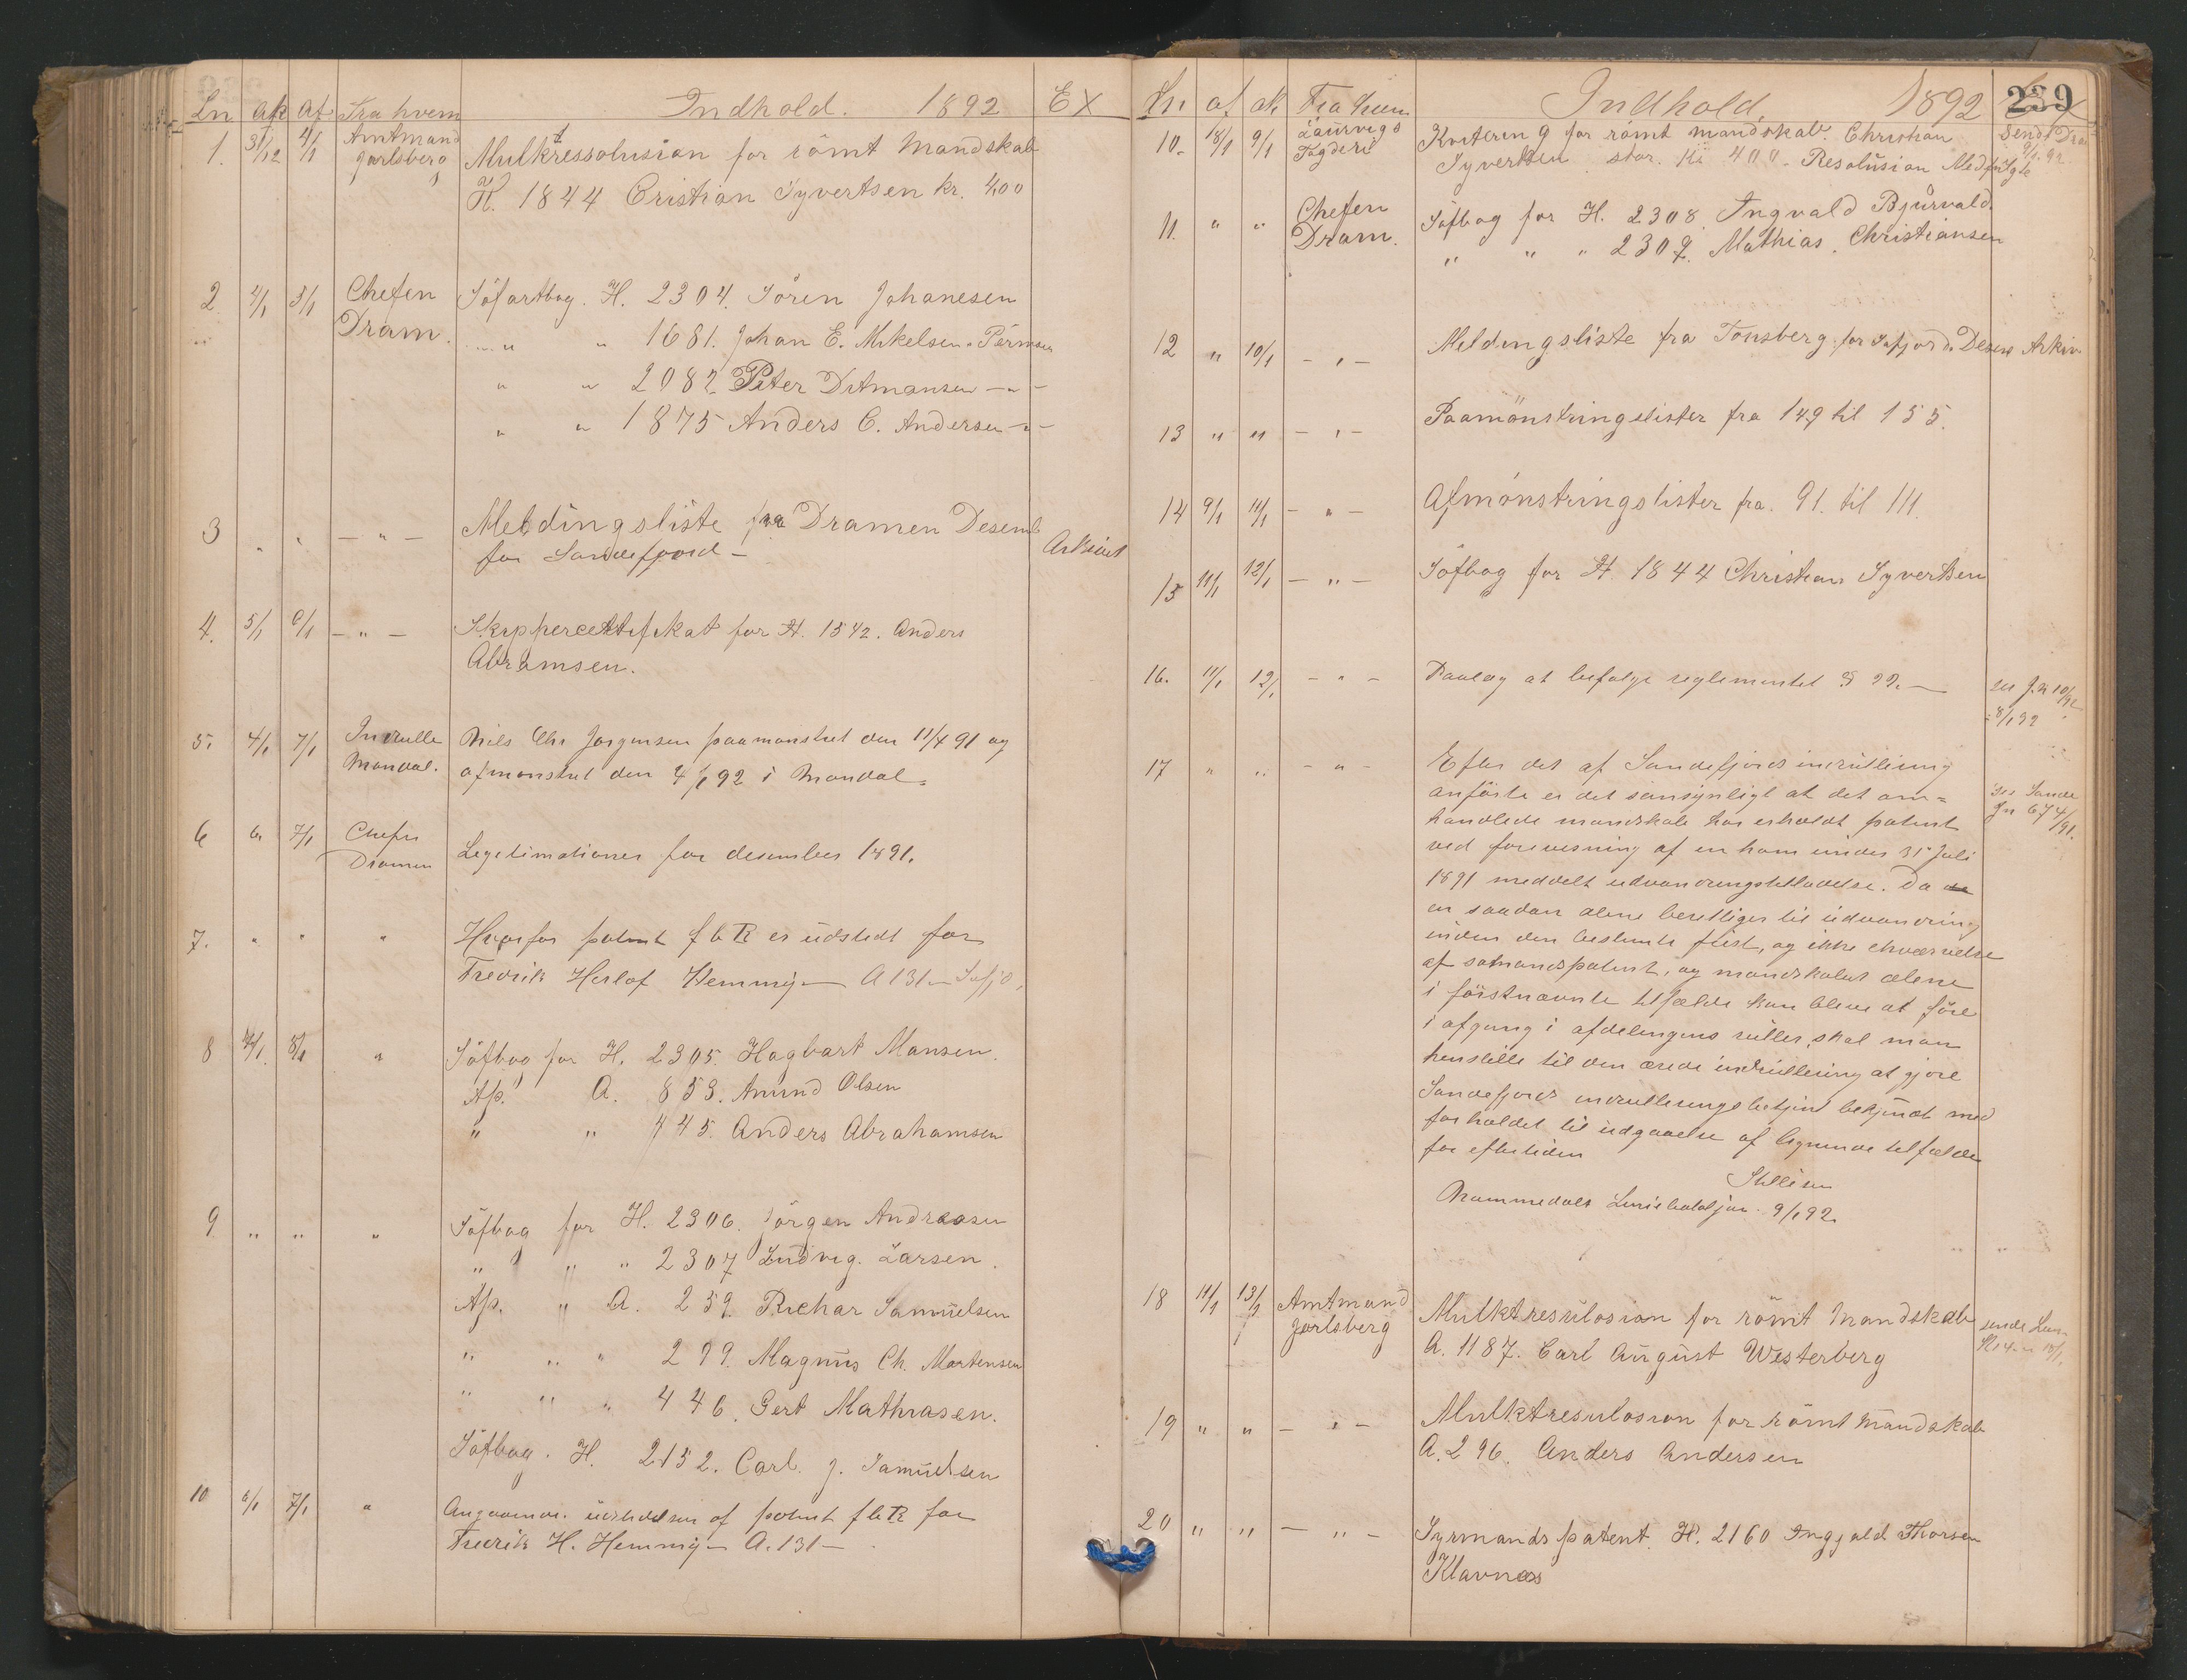 Ln ak af Fra hvem Indhold. 1892 EX
1. 31/12 4/1 Amtmand Mulktressolusion for römt Mandskab
Jarlsberg H. 1844 Cristian Syvertsen kr. 400
2 4/1 5/1 Chefen Söfartbog. H. 2304. Sören Johanesen
Dram. " " 1681. Johan E. Mikelsen
" " 2082 Peter Ditmansen — " —
" " 1875 Anders C. Andersen — " —
3 " " — " — Meldingsliste fra Dramen Desemb
for Sandefjord — Arkivet
4. 5/1 6/1 — " — Skippercertifikat for H. 1542. Anders
Abramsen.
5. 4/1 7/1 Inrulle Nils Chr Jorgensen paamonstret den 11/4 91 og
Mandal. afmonstret den 4/1 92 i Mandal
6 6/1 7/1 Chefen
Dramen Legitimationer for desember 1891.
7. " " " Hvorfor patent f b R er udstedt for
Fredrik Herlof Hemmig— A 131—
8 7/1 8/1 " Söfbog for H. 2305. Hagbart Hansen.
Af. A. 853. Amund Olsen
" " 445. Anders Abrahamsen
9 " " " Söfbog for H. 2306. Jörgen Andreasen
" " " 2307 Ludvig. Larsen.
Af. " A. 259. Richar Samuelsen
" " " 299. Magnus Ch. Martensen
" " " 446. Gert Mathiasen.
Söfbog. H. 2152. Carl. J. Samuelsen
10 6/1 7/1 " Angaaende udstedelsen af patent f b R for
Fredrik H. Hemmig— A. 131—
Ln af ak Fra hvem Indhold, 1892 239
10. 8/1 9/1 Laurvigs Kvitering for römt mandskab. Christian Sendt Dra
Syvertsen stor. Kr 400 - Resolusion Medfulgte 9/1. 92
11. " " Chefen Söfbog for H. 2308. Ingvald Bjurvald.
Dram. " " " 2309. Mathias. Christiansen
12 " 10/1 — " — Meldingsliste fra Tonsberg. for Safjord. Desem Arkiv
13 " " — " — Paamönstringslister fra 149 til 155.
14 9/1 11/1 — " — Afmönstringslister fra. 91. til 111.
15 11/1 12/1 — " — Söfbog for H. 1844 Christian Syvertsen
16. 11/1 12/1 — " — Paalæg at befolge reglementet § 22. — se J.n 10/92
8/1 92
17 " " — " — Efter det af Sandefjords inrullering
anförte er det sansynligt at det om=
handlede mandskab har erholdt patent
ved forevisning af en ham under 31 Juli
1891 meddelt udvandringstilladelse. Da
en saadan alene beretiger til udvandring
inden den bestemte frist, og ikke erhværvelse
af sømandspatent, og mandskabet alene
i förstnævnte tilfælde kan blive at före
i afgang i afdelingens ruller, skal man
henstille til den ærede inrullering at gjöre
Sandefjords inrulleringsbetjent bekjendt med
forholdet til undgaaelse af lignende tilfælde
for eftertiden
9/1 92.
se Sande
Jn 674/91.
18 11/1 13/1 Amtmand Mulktresulosion for römt Mandskab
Jarlsberg A. 1187. Carl August Westerberg
19 " " — " — Mulktresulosion for römt Mandskab
A. 296. Anders Andersen
20 " " — " — Syrmands patent. H. 2160 Inggald Thorsen
Klavnæs